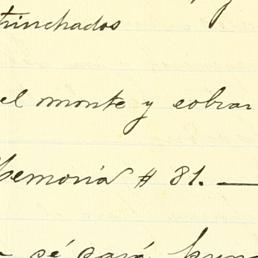 trinchados
el monte y cobrar
Memoria # 81. —
sé